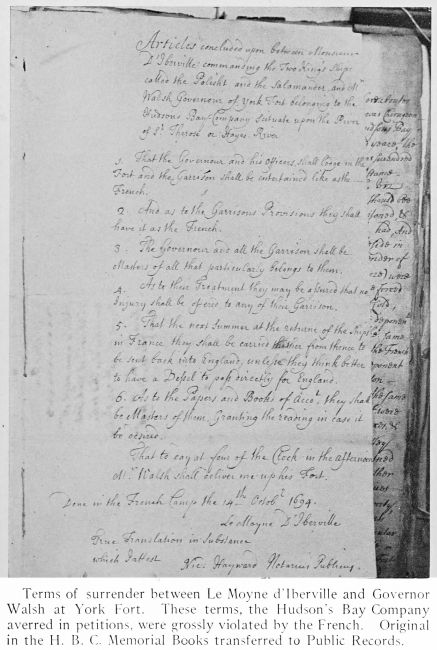 Articles concluded upon between Monsieur
D'Iberville commanding the Two King's Ships
called the Polisht and the Salamander, and Mr
Walsh Governour of York Fort belonging to the
Hudsons Bay Company Scituate upon the River
of St Therose or Hayes River
1. That the Governour and his Officers shall lodge in the
Fort and the Garrison shall be entertained like as the
French.
2. And as to the Garrisons Provisions they shall
have it as the French.
3. The Governour and all the Garrison shall be
Masters of all that particularly belongs to them.
4. As to their Treatment they may be assured that no
Injury shall be of to any of their Garrison.
5. That the next Summer at the returne of the Ships
in France they shall be carried thither from thence to
be sent back into England, unless they think better
to have a Vessel to pass directly for England.
6. As to the Papers and Books of Accot. they shall
be Masters of them, Granting the reading in case it
be desired.
That to day at four of the Clock in the Afternoon
Mr. Walsh shall deliver me up his Fort.
Done in the French Camp the 14th Octobr 1694.
Le Mayne D'Iberville
True Translation in Substance
which I attest Nic: Hayward Notarius Publicus
Terms of surrender between Le Moyne d'Iberville and Governor
Walsh at York Fort. These terms, the Hudson's Bay Company
averred in petitions, were grossly violated by the French. Original
in the H. B. C. Memorial Books transferred to Public Records.